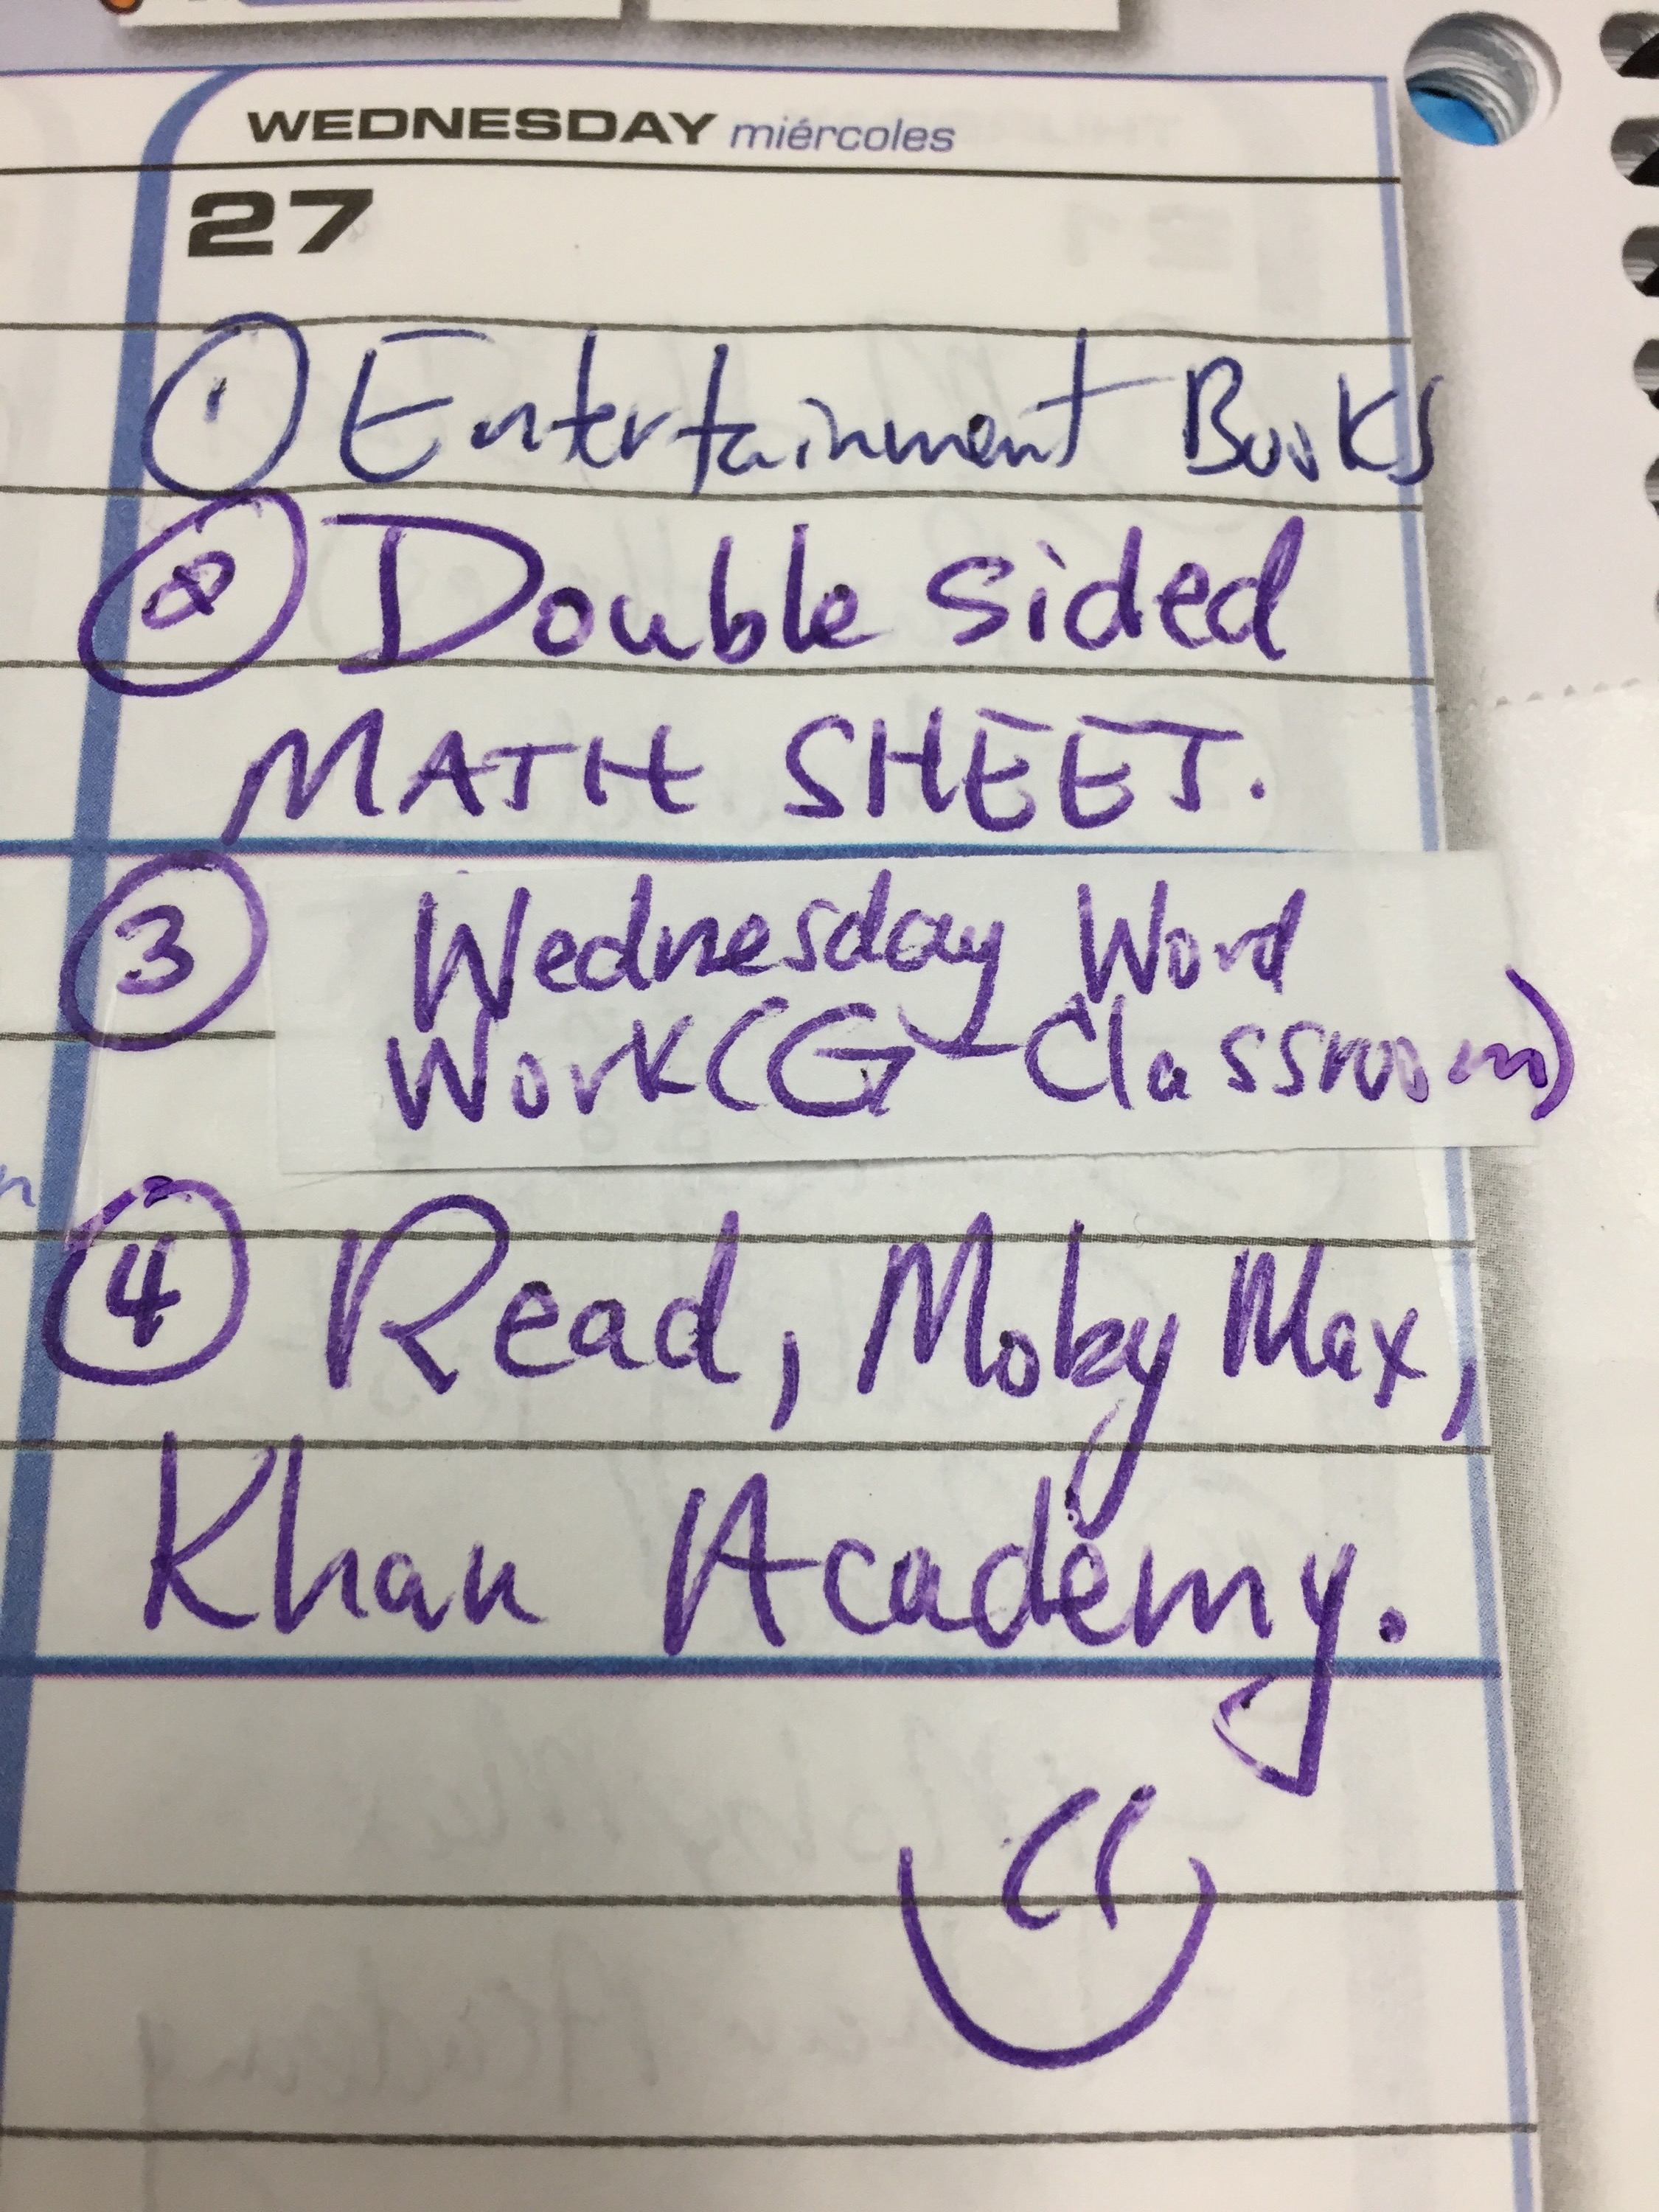 WEDNESDAY miércoles
27
① Entertainment Books
② Double sided
MATH SHEET.
③ Wednesday Word
Work (G-Classroom)
④ Read, Moby Max,
Khan Academy.